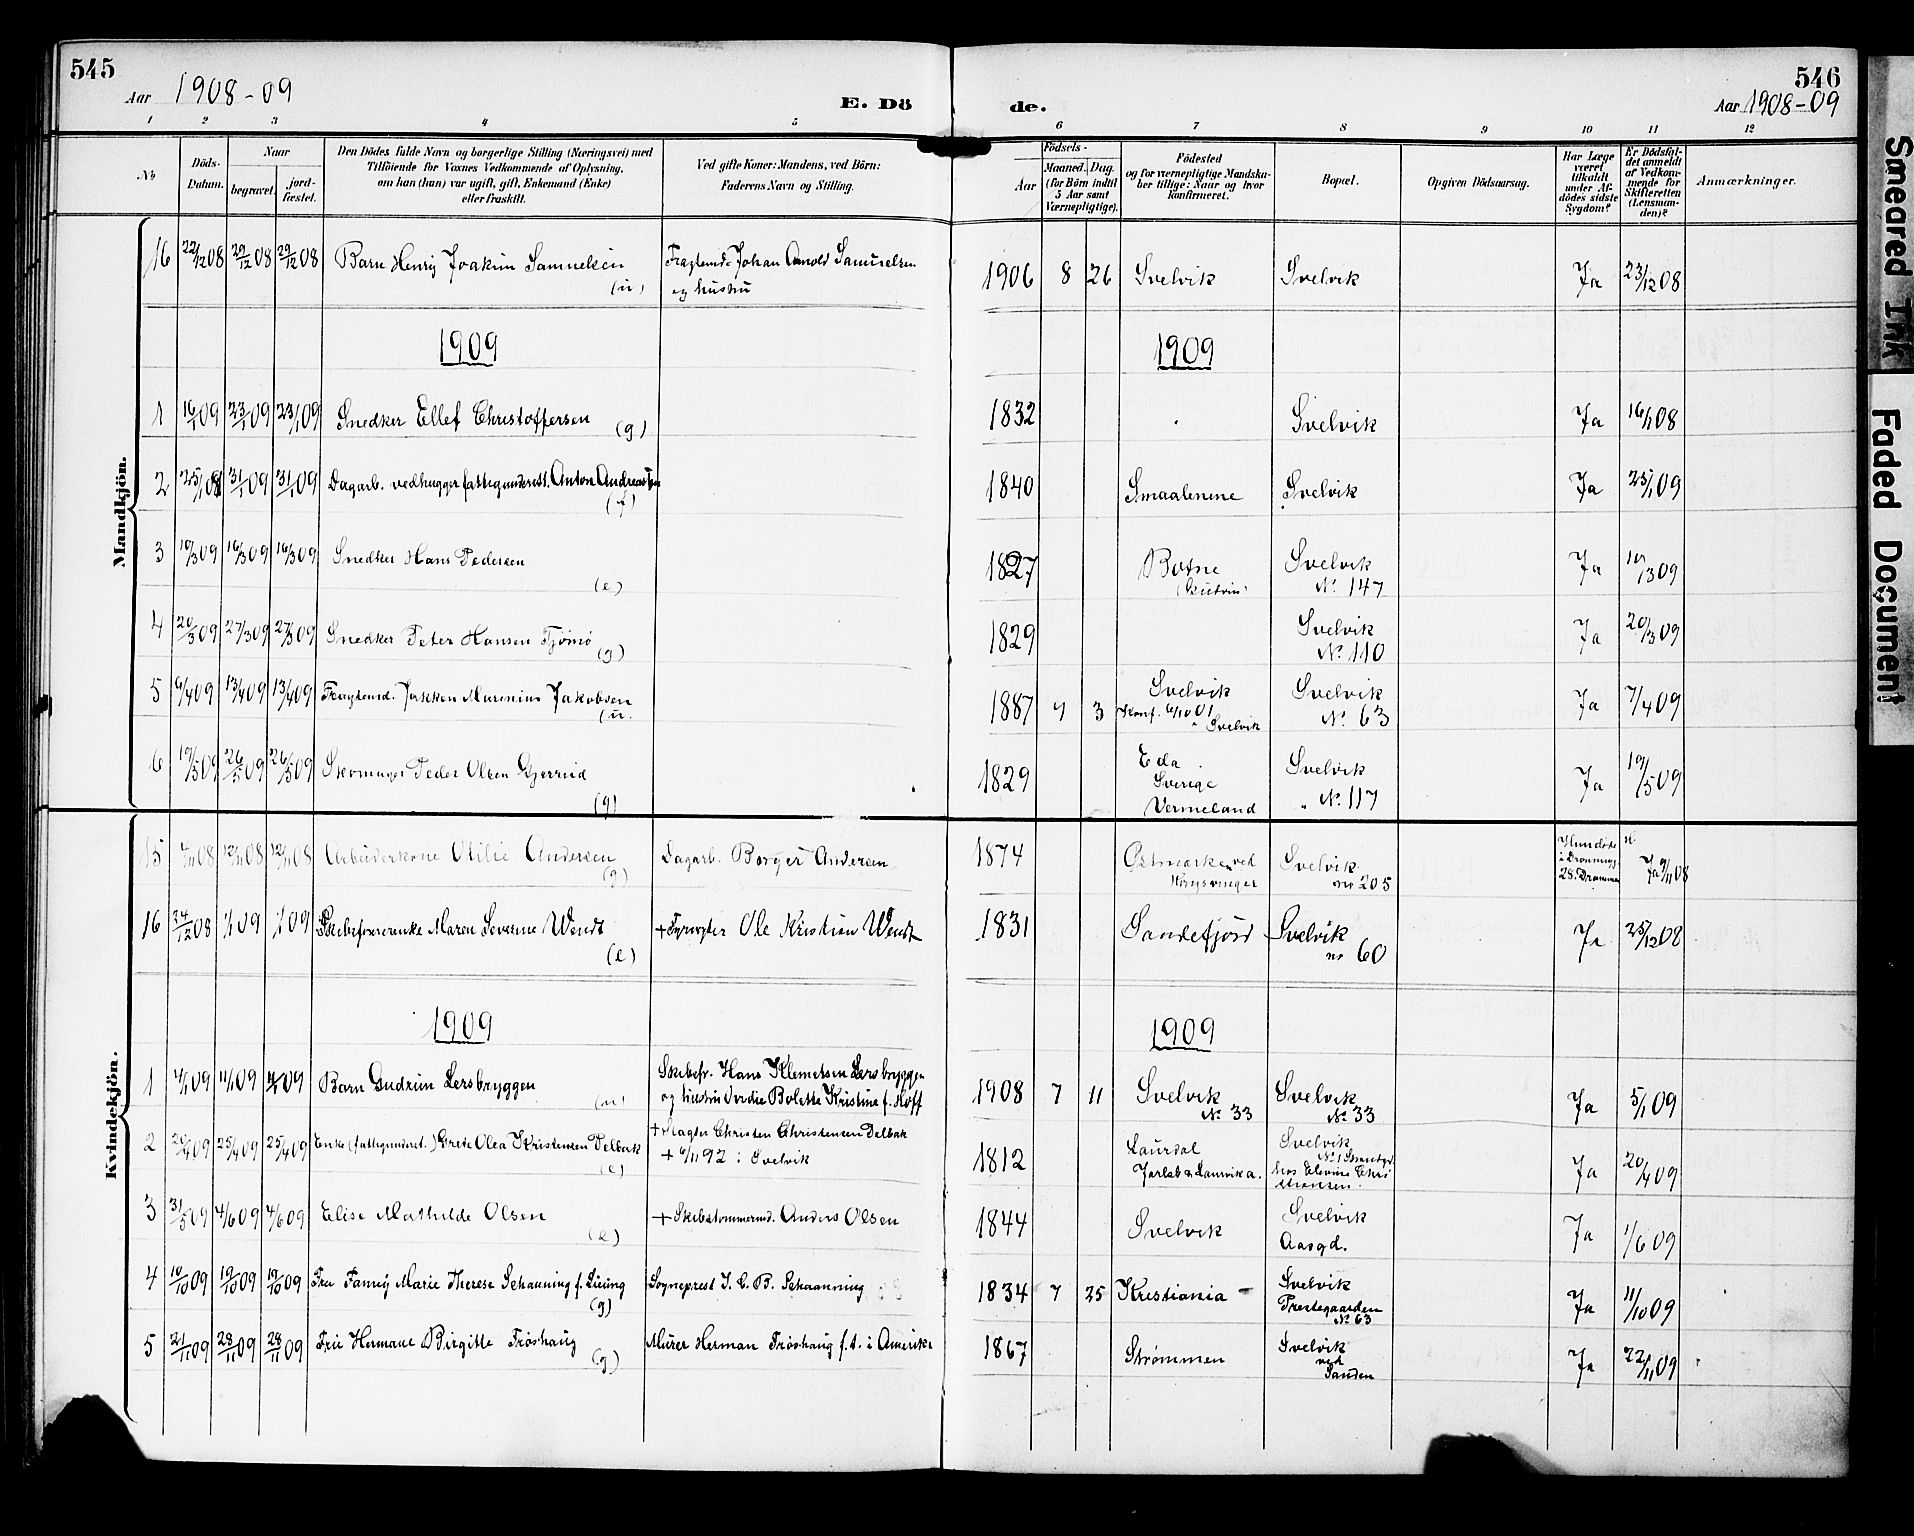 545
Aar 1908-09
E. Dö
de.
546
Aar 1908-09
1 2 3 4 5 6 7 8 9 10 11 12
No
Döds-
Datum.
Naar
begravet.
jord-
fæstet.
Den Dödes fulde Navn og borgerlige Stilling (Næringsvei) med
Tilföiende for Voxnes Vedkommende af Oplysning,
om han (hun) var ugift, gift, Enkemand (Enke)
eller fraskilt.
Ved gifte Koner: Mandens, ved Börn:
Faderens Navn og Stilling.
Födsels-
Aar
Maaned. Dag.
(for Börn indtil
5 Aar samt
Værnepligtige).
Födested
og for værnepligtige Mandska-
ber tillige: Naar og hvor
konfirmeret.
Bopæl.
Opgiven Dödsaarsag.
Har Læge
været
tilkaldt
under Af-
dödes sidste
Sygdom?
Er Dödsfal-
det anmeldt
af Vedkom-
mende for
Skifteretten
(Lensman-
den)?
Anmærkninger.
Mandkjön.
16 22/12 08 29/12 08 29/12 08 Barn Henrij Joakim Samuelsen (u) Fragtemd. Johan Arnold Samuelsen
og hustru
1906 8 26 Svelvik Svelvik Ja 23/12 08
1909 1909
1 16/1 09 23/1 09 23/1 09 Snedker Ellef Christoffersen (g) 1832 Svelvik Ja 16/1 08
2 25/1 08 31/1 09 31/1 09 Dagarb. vedhugger fattigunderst. Anton Andreas (f) 1840 Smaalenene Svelvik Ja 25/1 09
3 10/3 09 16/3 09 16/3 09 Snedker Hans Pedersen (e) 1827 Botne Svelvik
No 147 Ja 10/3 09
4 20/3 09 27/3 09 27/3 09 Snedker Peter Hansen Tjømø (g) 1829 Svelvik
No 110 Ja 20/3 09
5 6/4 09 13/4 09 13/4 09 Fragtemd. Jakken Marinius Jakobsen (u. 1887 4 3 Svelvik
Konf. 6/10 01
" Svelvik
Svelvik
No 63 Ja 7/4 09
6 19/5 09 26/5 09 26/5 09 Skomager Peder Olsen Gjerrud (g) 1829 Eda
Sverige
Vermeland
Svelvik
" No 117 Ja 19/5 09
Kvindekjön.
15 7/11 08 12/11 08 12/11 08 Arbeiderkone Otilie Andersen (g) Dagarb. Borger Andersen 1874 Østmarke ved
Kongsvinger
Svelvik
no 205
Hun døde
28. Drammen
Ja 9/11 08
16 24/12 08 1/1 09 1/1 09 Skibsførerenke Maren Severine Wendt (e) + Fyrvogter Ole Kristian Wendt 1831 Sandefjord Svelvik
no 60 Ja 25/12 08
1909 1909
1 4/1 09 11/1 09 11/1 09 Barn Gudrun Lersbryggen Skibsfr. Hans Klemetsen Lersbryggen
og hustru Verdie Bolette Kristine f. Hoff
1908 7 11 Svelvik
No 33
Svelvik
No 33 Ja 5/1 09
2 20/4 09 25/4 09 25/4 09 Enke (fattigunderst.) Grete Olea Kristensen Delbæk (e) + Slagter Christen Christensen Delbæk
+ 6/11 92 i Svelvik
1812 Laurdal
Jarlsb & Laurvik a.
Svelvik
hos Elevine Chri
stiansen.
Ja 20/4 09
3 31/5 09 4/6 09 4/6 09 Elise Mathilde Olsen (e) + Skibstømmermd. Anders Olsen 1844 Svelvik Svelvik
Aasgd. Ja 1/6 09
4 10/10 09 19/10 09 19/10 09 Fru Fanny Marie Therese Schanning f. (g) Sogneprest J. C. B. Schaanning 1834 7 25 Kristiania Svelvik
Prestegaarden
No 63 Ja 11/10 09
5 21/11 09 28/11 09 28/11 09 Fru Hermane Birgitte Frøshaug (g) Murer Herman Frøshaug f. t. i Amerika 1867 Strømmen Svelvik
ved
Sanden Ja 22/11 09
Smeared Ink
Faded Document